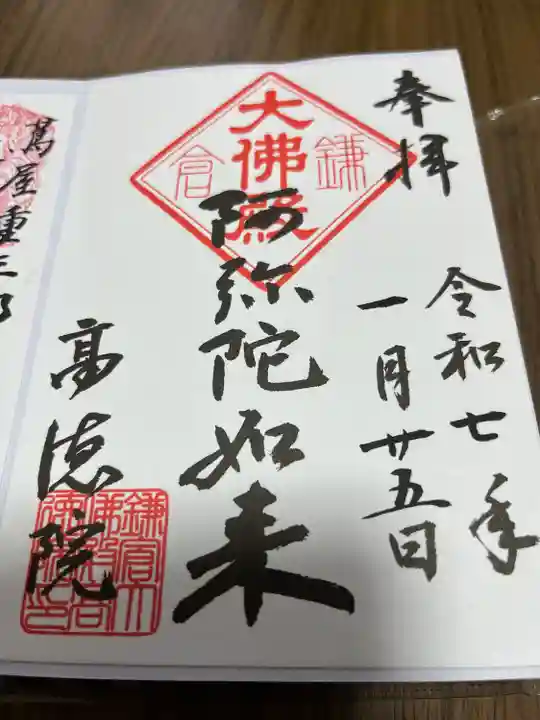 奉拝
令和七年
一月廿五日
鎌倉
大佛殿
阿弥陀如来
高徳院
鎌倉大
佛殿高
徳院印
蔦屋重三郎